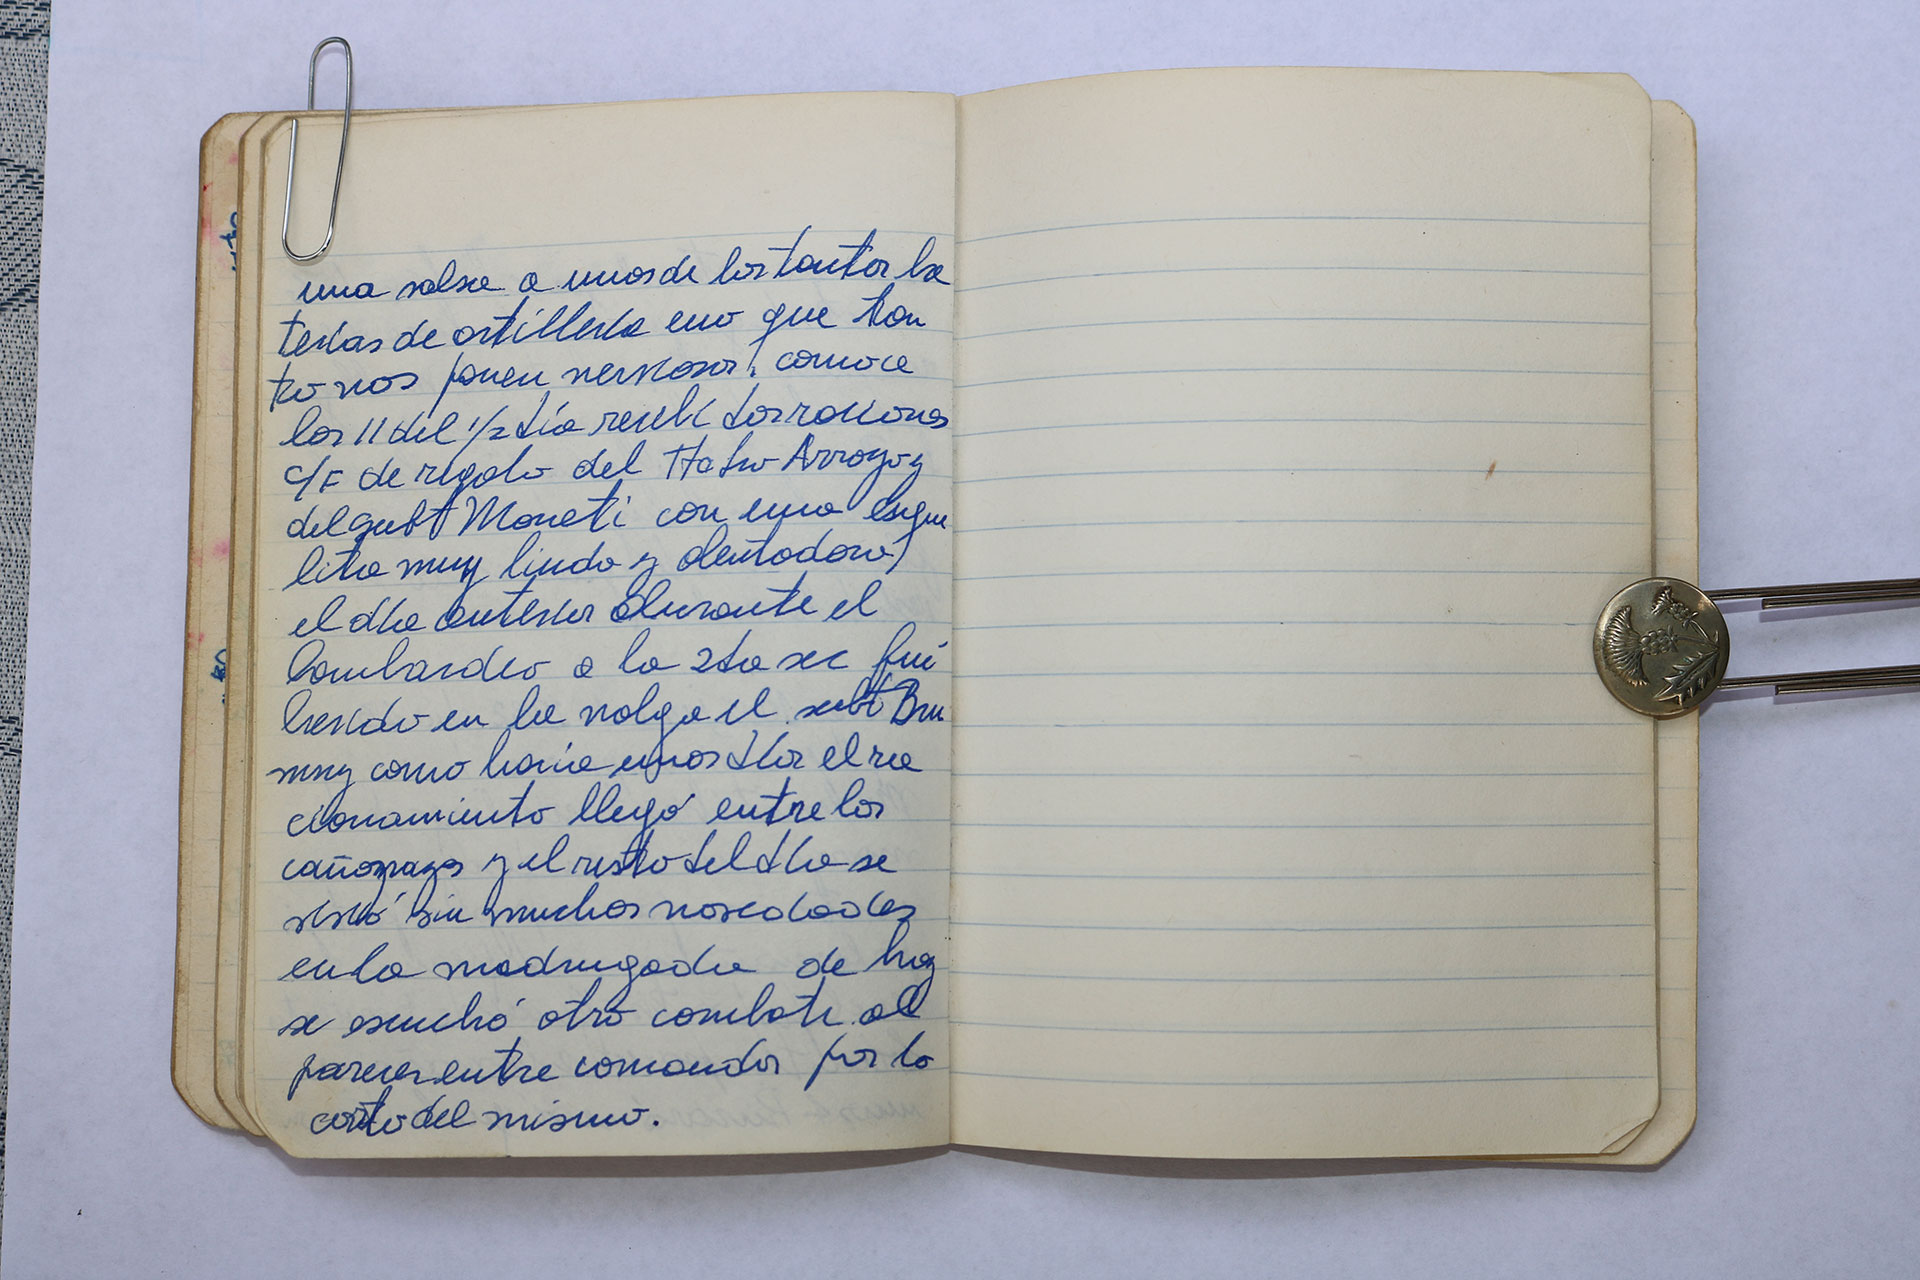 una salva a unos de los tantos ba
terías de artillería eno que tan
to nos ponen nerviosos, como a
las 11 del 1/2 día recibí dos raciones
c/F de regalo del Arroyo y
del subt Moneti con una esque
lita muy linda y alentadora,
el día anterior durante el
bombardeo a la 2da sec fui
herido en la nalga el subt Bru
muy como hacía unos días el ra
cionamiento llegó entre los
cañonazos y el resto del día se
sin muchas novedades
en la madrugada de hoy
se escuchó otro combate al
parecer entre comandos por lo
corto del mismo.